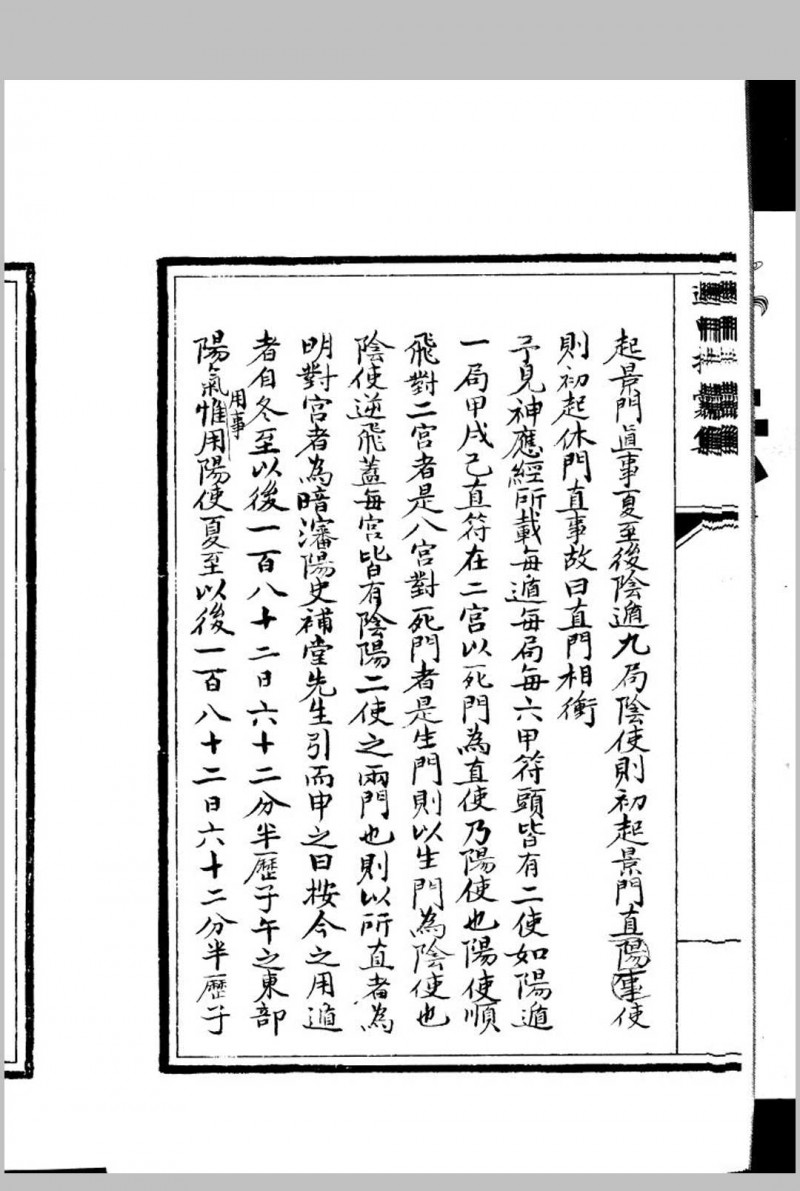 起景門直事夏至後陰遁九局陰使則初起景門直陽事使
則初起休門直事故曰直門相衝
予見神應經所載每遁每局每六甲符頭皆有二使如陽遁
一局甲戌己直符在二宮以死門為直使乃陽使也陽使順
飛對二宮者是八宮對死門者是生門則以生門為陰使也
陰使逆飛蓋每宮皆有陰陽二使之兩門也則以所直者為
明對宮者為暗瀋陽史補堂先生引而申之曰按今之用遁
者自冬至以後一百八十二日六十二分半歷子午之東部
陽氣用事惟用陽使夏至以後一百八十二日六十二分半歷子